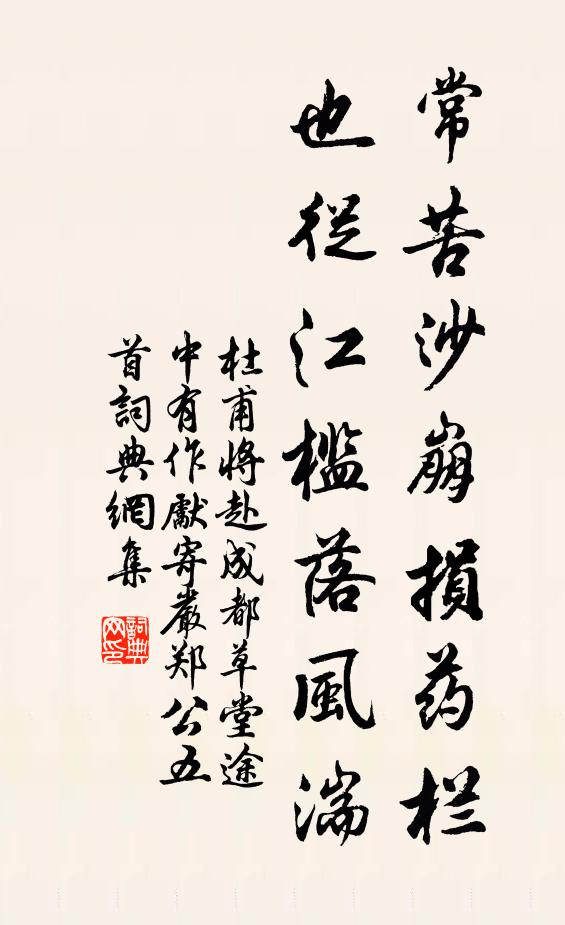 常苦沙崩損药栏
也從江檻落風湍
杜甫將赴成都草堂途
中有作獻寄嚴郑公五
首詞典網集
詞典
网印